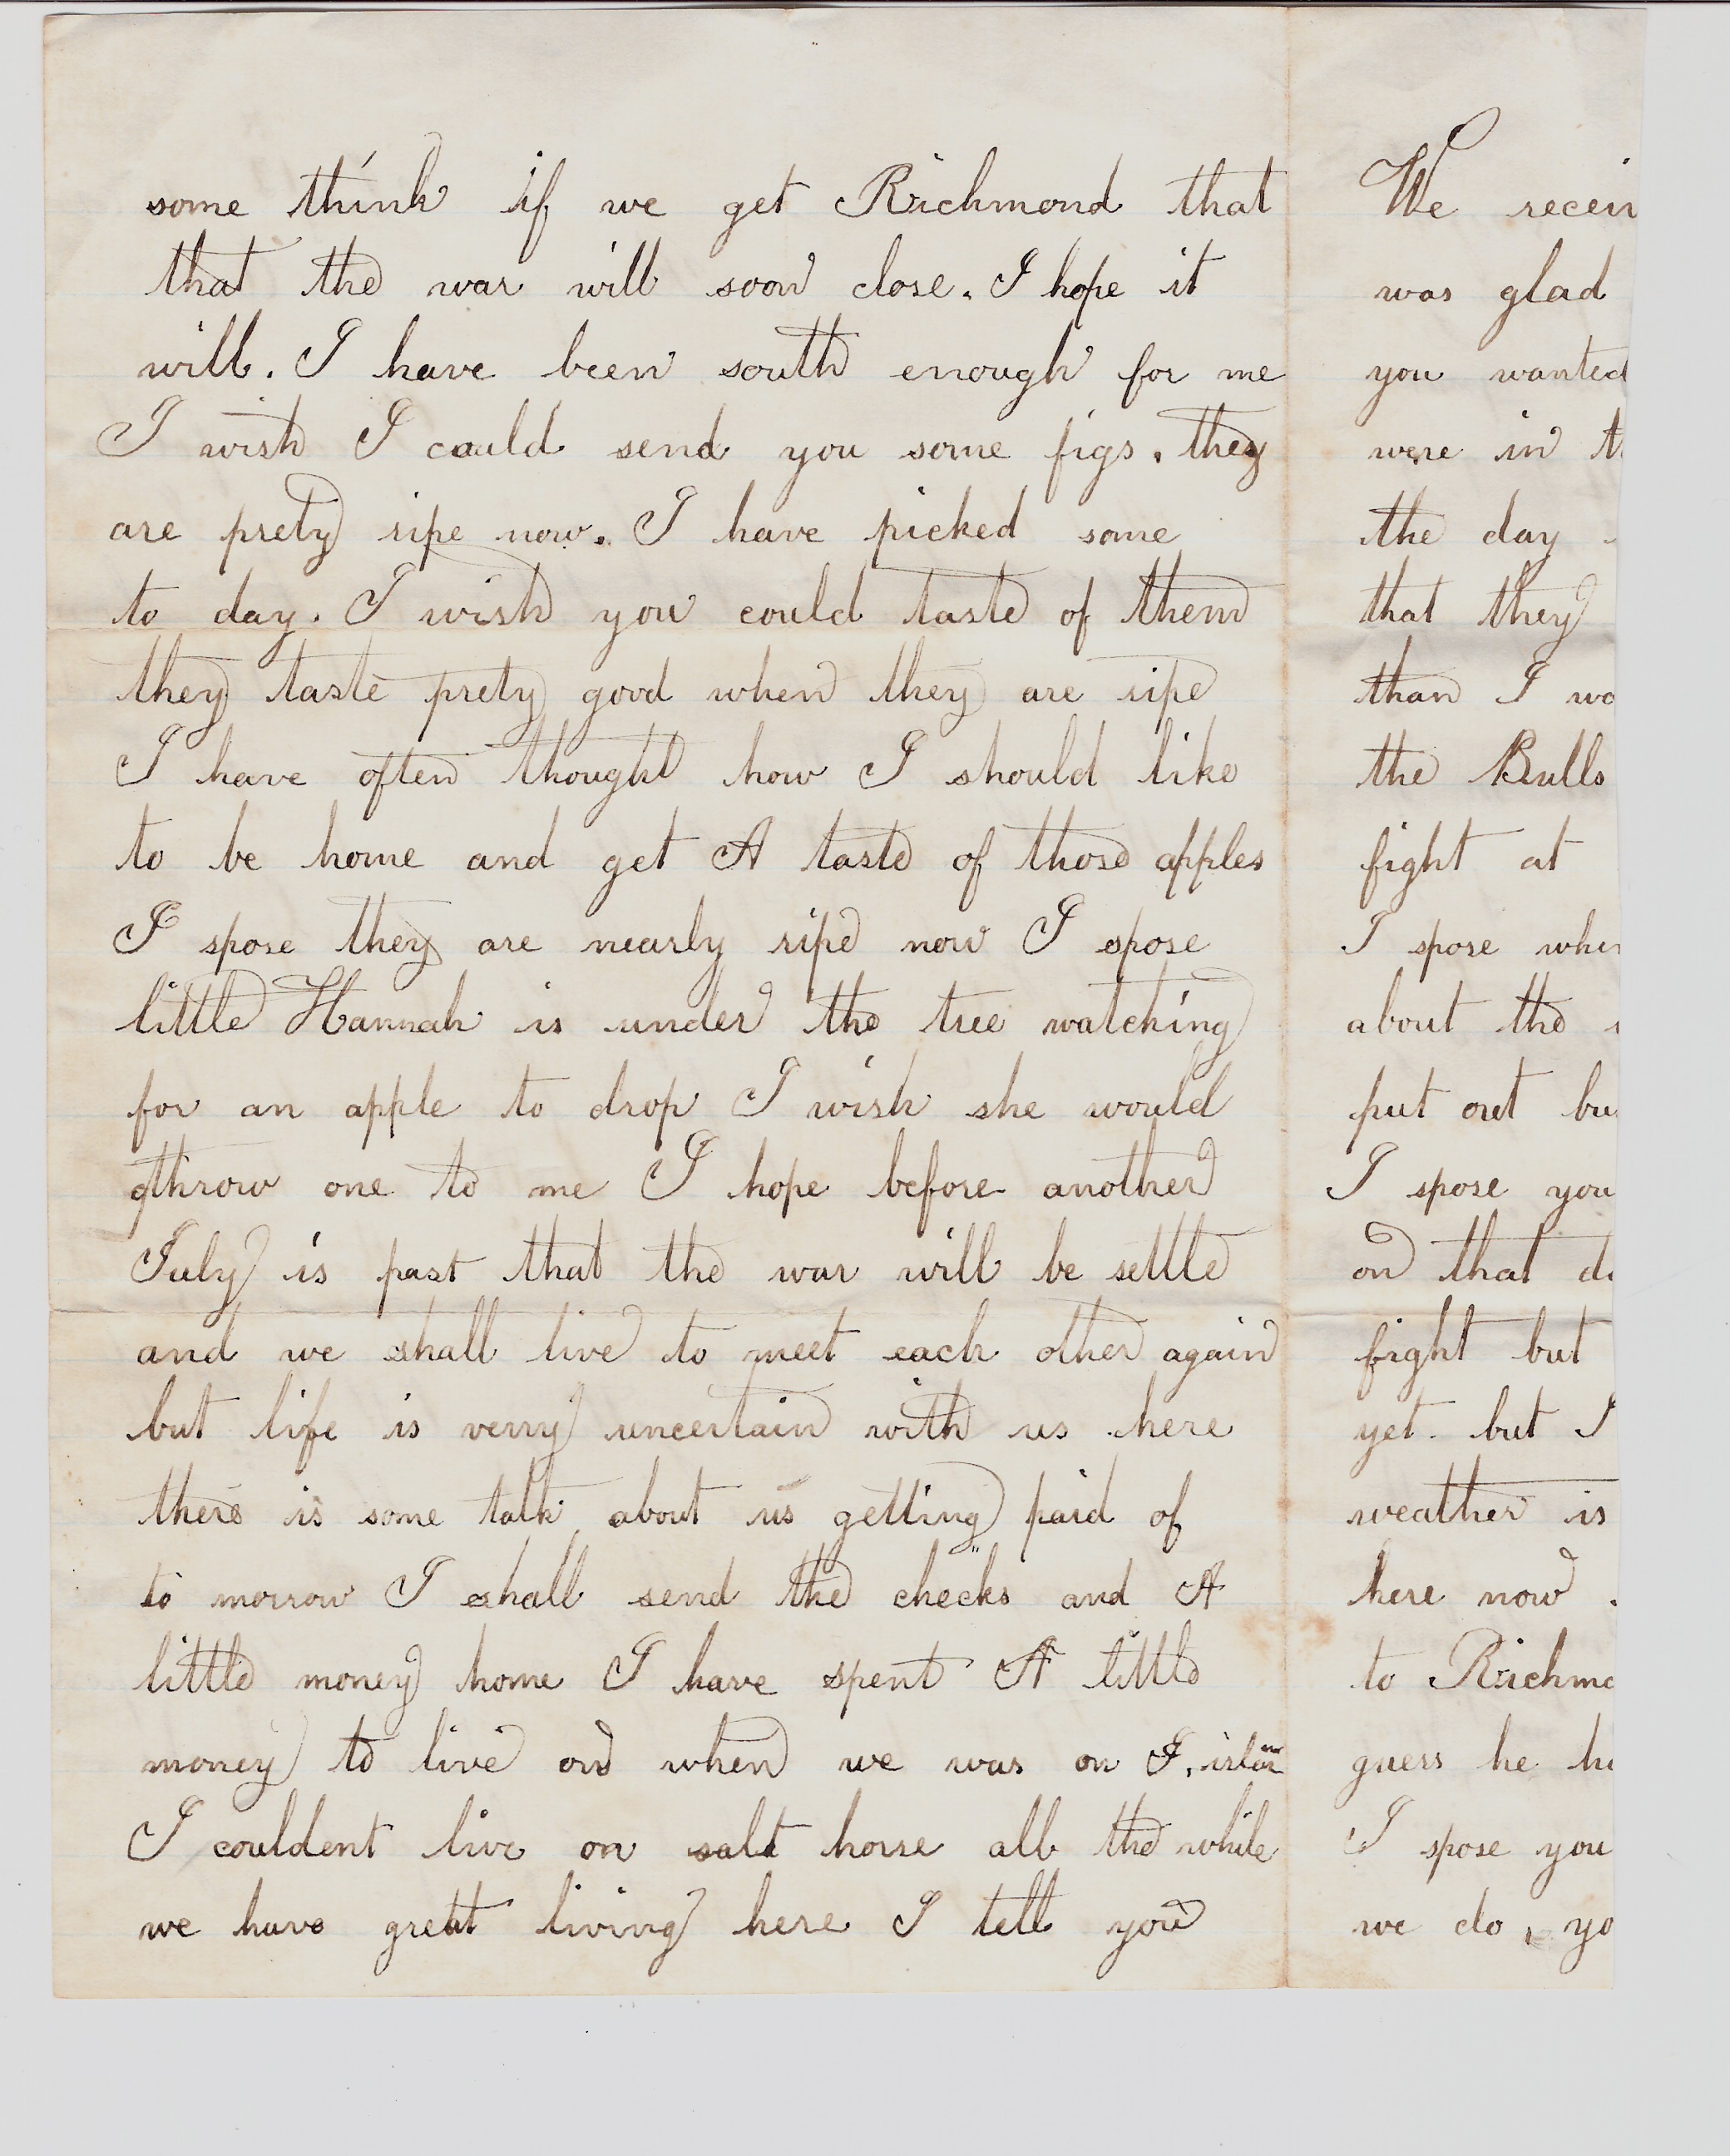 some think if we get Richmond that
that the war will soon close. I hope it
will. I have been south enough for me
I wish I could send you some figs. they
are prety ripe now. I have picked some
to day. I wish you could taste of them
they taste prety good when they are ripe
I have often thought how I should like
to be home and get A taste of those apples
I spose they are nearly ripe now I spose
little Hannah is under the tree watching
for an apple to drop I wish she would
throw one to me I hope before another
July is past that the war will be settle
and we shall live to meet each other again
but life is verry uncertain with us here
there is some talk about us getting paid of
to morrow I shall send the checks and A
little money home I have spent A little
money to live on when we was on
I couldent live on salt horse all the while
we have greait living here I tell you
We
was glad
you wanted
were in
the day
that they
than I
the Bulls
fight at
I spose
about the
put out
I spose you
on that
fight but
yet. but I
weather is
here now
to
guess he
I spose you
we do,